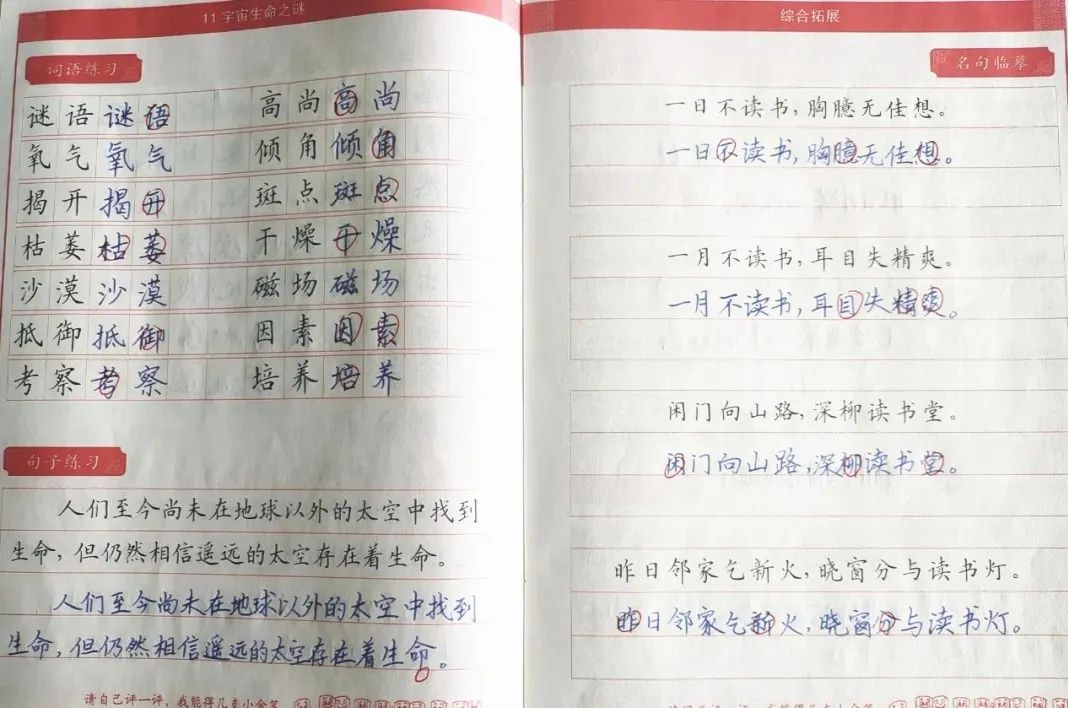 11 宇宙生命之谜
词语练习
谜语谜语 高尚高尚
氧气氧气 倾角倾角
揭开揭开 斑点斑点
枯萎枯萎 干燥干燥
沙漠沙漠 磁场磁场
抵御抵御 因素因素
考察考察 培养培养
句子练习
人们至今尚未在地球以外的太空中找到
生命，但仍然相信遥远的太空存在着生命。
人们至今尚未在地球以外的太空中找到
生命，但仍然相信遥远的太空存在着生命。
请自己评一评，我能得几支小金笔
综合拓展
名句临摹
一日不读书，胸臆无佳想。
一日不读书，胸臆无佳想。
一月不读书，耳目失精爽。
一月不读书，耳目失精爽。
闲门向山路，深柳读书堂。
闲门向山路，深柳读书堂。
昨日邻家乞新火，晓窗分与读书灯。
昨日邻家乞新火，晓窗分与读书灯。